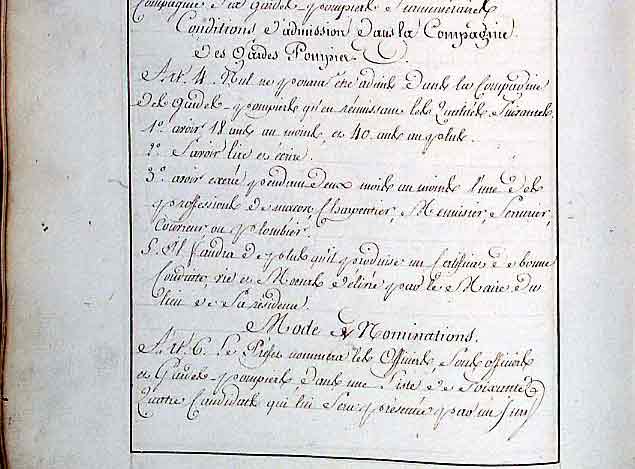 Compagnie de Gardes-pompiers Surnuméraires
Conditions d'admission dans la Compagnie
des Gardes Pompier.
Art. 4. Nul ne pourra être admis dans la Compagnie
des Gardes-pompiers qu'en réunissant les qualités Suivantes
1º avoir 18 ans au moins, et 40 ans au plus.
2º Savoir lire et écrire.
3º avoir exercé pendant deux mois au moins l'une des
professions de macon, Charpentier, Menuisier, Serrurier,
Couvreur ou plombier.
5. Il faudra de plus qu'il produise un Certificat de bonne
Conduite, vie et Moeurs délivré par le Maire du
lieu de Sa résidence.
Mode de Nominations.
Art. 6. Le Préfet nommera les Officiers, Sous officiers
et Gardes-pompiers dans une Liste de Soixante
Quatre Candidats qui lui Sera présentée par un Jury